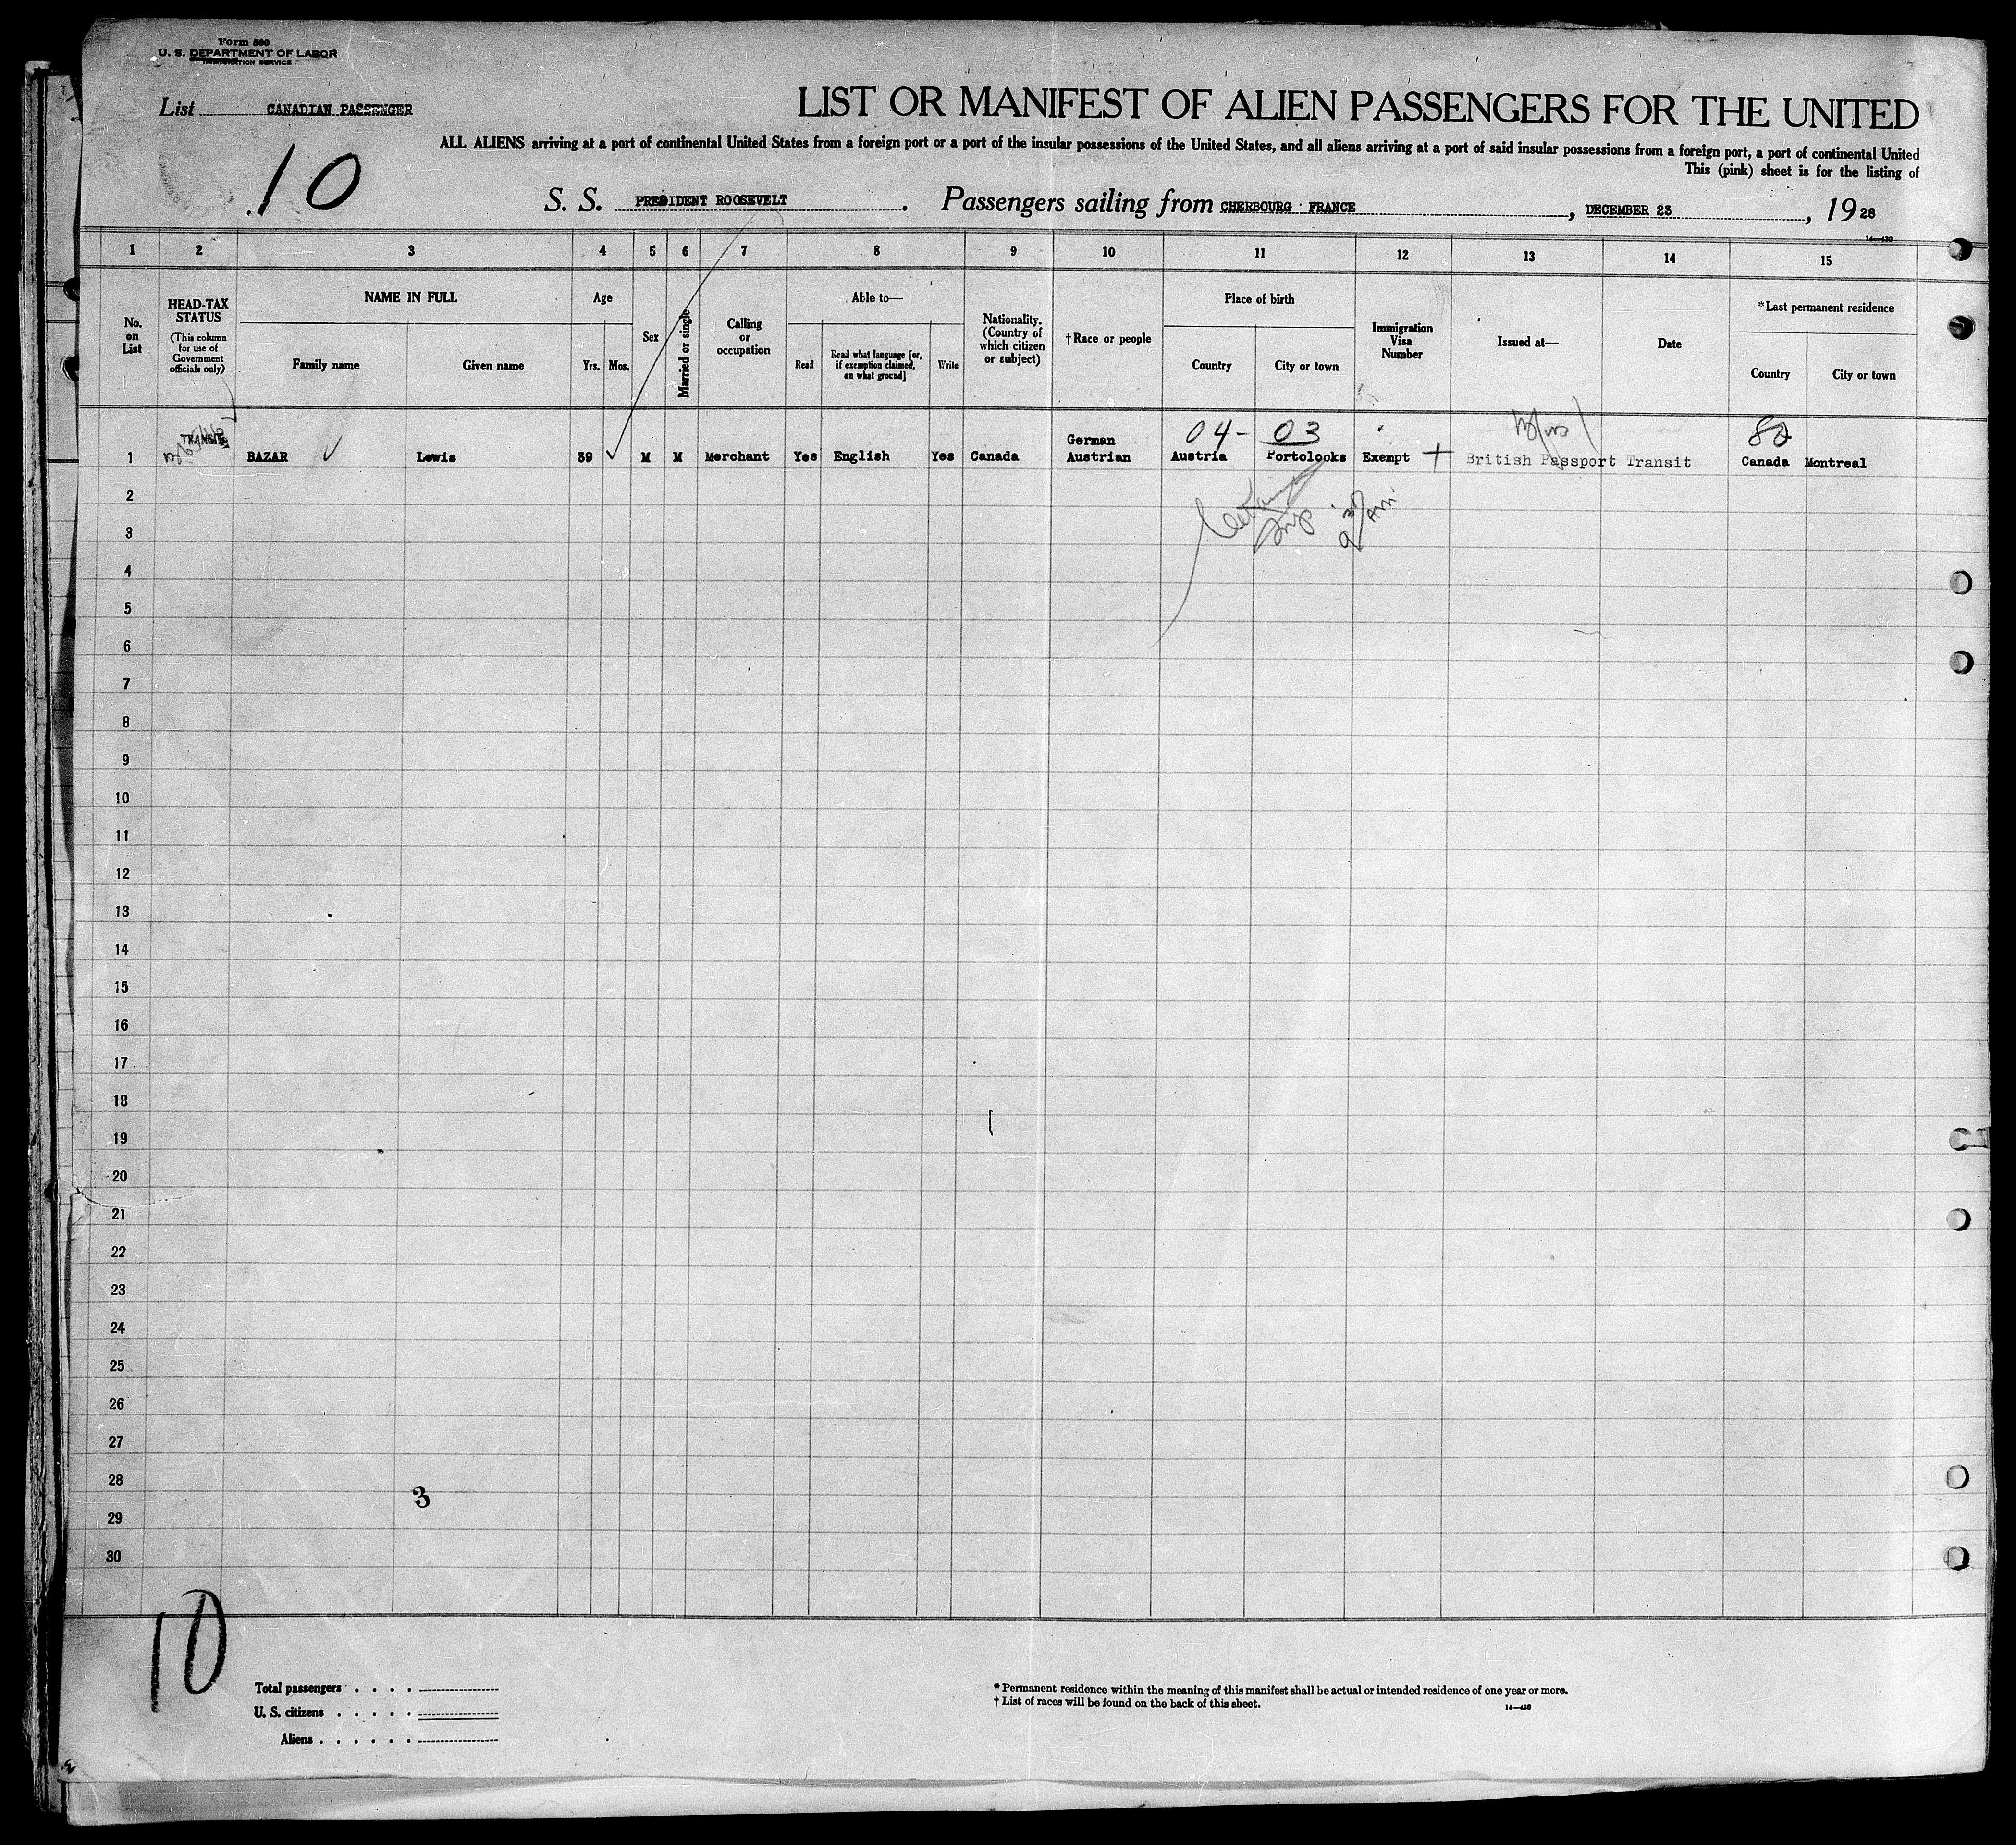 Form 500
U. S. DEPARTMENT OF LABOR
IMMIGRATION SERVICE
List CANADIAN PASSENGER
LIST OR MANIFEST OF ALIEN PASSENGERS FOR THE UNITED
ALL ALIENS arriving at a port of continental United States from a foreign port or a port of the insular possessions of the United States, and all aliens arriving at a port of said insular possessions from a foreign port, a port of continental United
This (pink) sheet is for the listing of
10
S. S. PRESIDENT ROOSEVELT. Passengers sailing from CHERBOURG FRANCE, DECEMBER 23, 1928
14—430
1 2 3 4 5 6 7 8 9 10 11 12 13 14 15
No. on List
HEAD-TAX STATUS
(This column for use of Government officials only)
NAME IN FULL
Family name
Given name
Age
Yrs. Mos.
Sex
Married or single
Calling or occupation
Able to—
Read
Read what language [or, if exemption claimed, on what ground]
Write
Nationality. (Country of which citizen or subject)
†Race or people
Place of birth
Country
City or town
Immigration Visa Number
Issued at—
Date
*Last permanent residence
Country
City or town
04- 03 82
TRANSIT German
1 BAZAR Lewis 39 M M Merchant Yes English Yes Canada Austrian Austria Portolooks Exempt British Passport Transit Canada Montreal
2
3
4
5
6
7
8
9
10
11
12
13
14
15
16
17
18
19
20
21
22
23
24
25
26
27
28
3
29
30
10
Total passengers
U. S. citizens
Aliens
* Permanent residence within the meaning of this manifest shall be actual or intended residence of one year or more.
† List of races will be found on the back of this sheet.
14—430